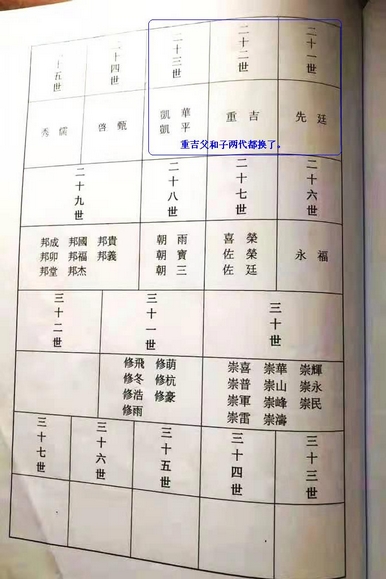 二十一世
二十二世
二十三世
二十四世
二十五世
先廷
重吉
凱華
凱平
啓甄
秀儒
重吉父和子两代都换了。
二十六世
二十七世
二十八世
二十九世
永福
喜榮
佐榮
佐廷
朝雨
朝寶
朝三
邦成 邦國 邦貴
邦卯 邦福 邦義
邦堂 邦杰
三十世
三十一世
三十二世
崇喜 崇華 崇輝
崇普 崇山 崇永
崇軍 崇峰 崇民
崇雷 崇濤
修飛 修萌
修冬 修杭
修浩 修豪
修雨
三十三世
三十四世
三十五世
三十六世
三十七世